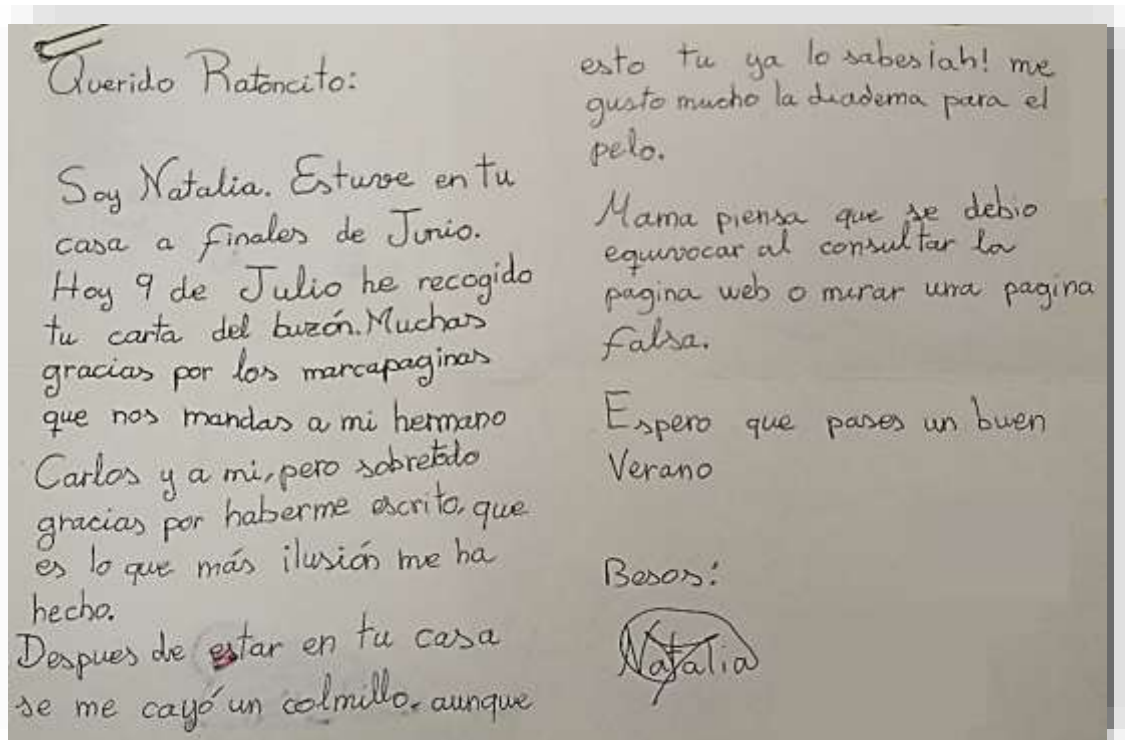 Querido Ratoncito:
Soy Natalia. Estuve en tu
casa a finales de Junio.
Hoy 9 de Julio he recogido
tu carta del buzón. Muchas
gracias por los marcapaginas
que nos mandas a mi hermano
Carlos y a mi, pero sobretodo
gracias por haberme escrito, que
es lo que más ilusión me ha
hecho.
Despues de estar en tu casa
se me cayó un colmillo, aunque
esto tu ya lo sabes ¡ah! me
gusto mucho la diadema para el
pelo.
Mama piensa que se debio
equivocar al consultar la
pagina web o mirar una pagina
falsa.
Espero que pases un buen
Verano
Besos:
Natalia